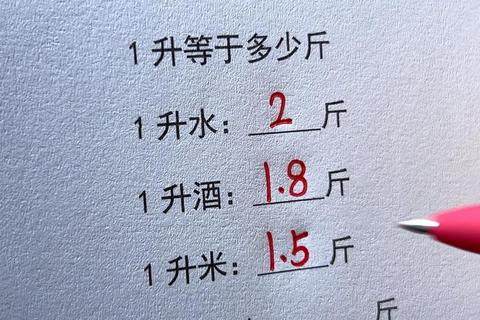 1升等于多少斤
1升水：2斤
1升酒：1.8斤
1升米：1.5斤
斤